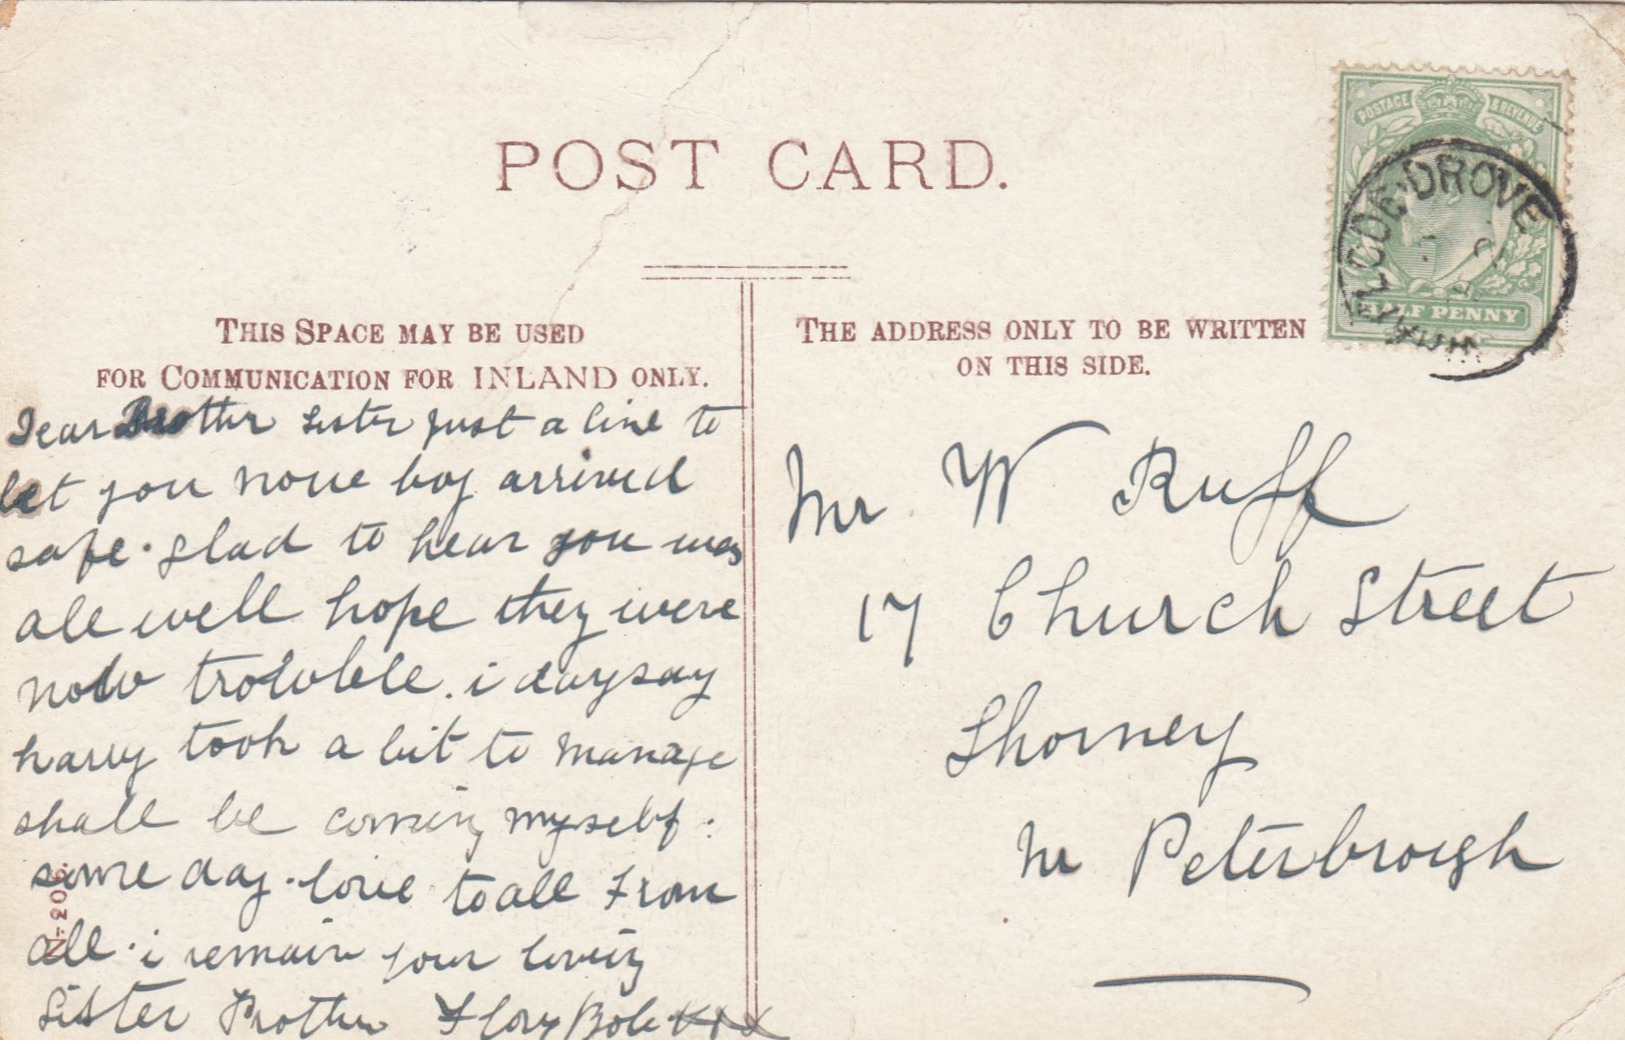 POST CARD.
THIS SPACE MAY BE USED
FOR COMMUNICATION FOR INLAND ONLY.
THE ADDRESS ONLY TO BE WRITTEN
ON THIS SIDE.
POSTAGE & REVENUE
HALF PENNY
DROVE
Dear Brother Sister just a line to
let you none boy arrived
safe. glad to hear you was
all well hope they were
now trowble. i daysay
harry took a bit to manage
shall be coming myself.
some day. love to all From
all. i remain your loving
Sister Brother Flory Bob
N-306.
Mr W Ruff
17 Church Street
Thorney
Nr Peterbrough